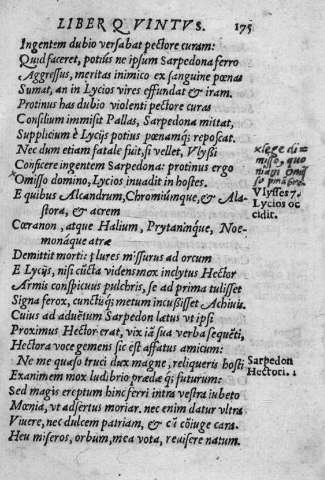 LIBER QVINTVS. 175
Ingentem dubio versabat pectore curam:
Quid faceret, potiùs ne ipsum Sarpedona ferro
Aggressus, meritas inimico ex sanguine pœnas
Sumat, an in Lycios vires effundat & iram.
Protinus has dubio violenti pectore curas
Consilium immisit Pallas, Sarpedona mittat,
Supplicium è Lycijs potius pœnamq; reposcat.
Nec dum etiam fatale fuit, si vellet, Vlyssi
Conficere ingentem Sarpedona: protinus ergo
Omisso domino, Lycios inuadit in hostes.
E quibus Alcandrum, Chromiúmque, & Ala-
stora, & acrem
Cœranon, atque Halium, Prytanínque, Noe-
monáque atræ
Demittit morti: plures missurus ad orcum
E Lycijs, nisi cūcta videns mox inclytus Hector
Armis conspicuus pulchris, se ad prima tulisset
Signa ferox, cunctisq; metum incussisset Achiuis.
Cuius ad aduētum Sarpedon lætus vt ipsi
Proximus Hector erat, vix iā sua verba sequēti,
Hectora voce gemens sic est affatus amicum:
Ne me quæso truci dux magne, reliqueris hosti
Exanimem mox ludibrio prædæq; futurum:
Sed magis ereptum hinc ferri intra vestra iubeto
Mœnia, vt adsertus moriar. nec enim datur vltra
Viuere, nec dulcem patriam, & cū cōiuge cara.
Heu miseros, orbum, mea vota, reuisere natum.
misso, quo
niam
Vlysses 7.
Lycios oc
cidit.
Sarpedon
Hectori. 1